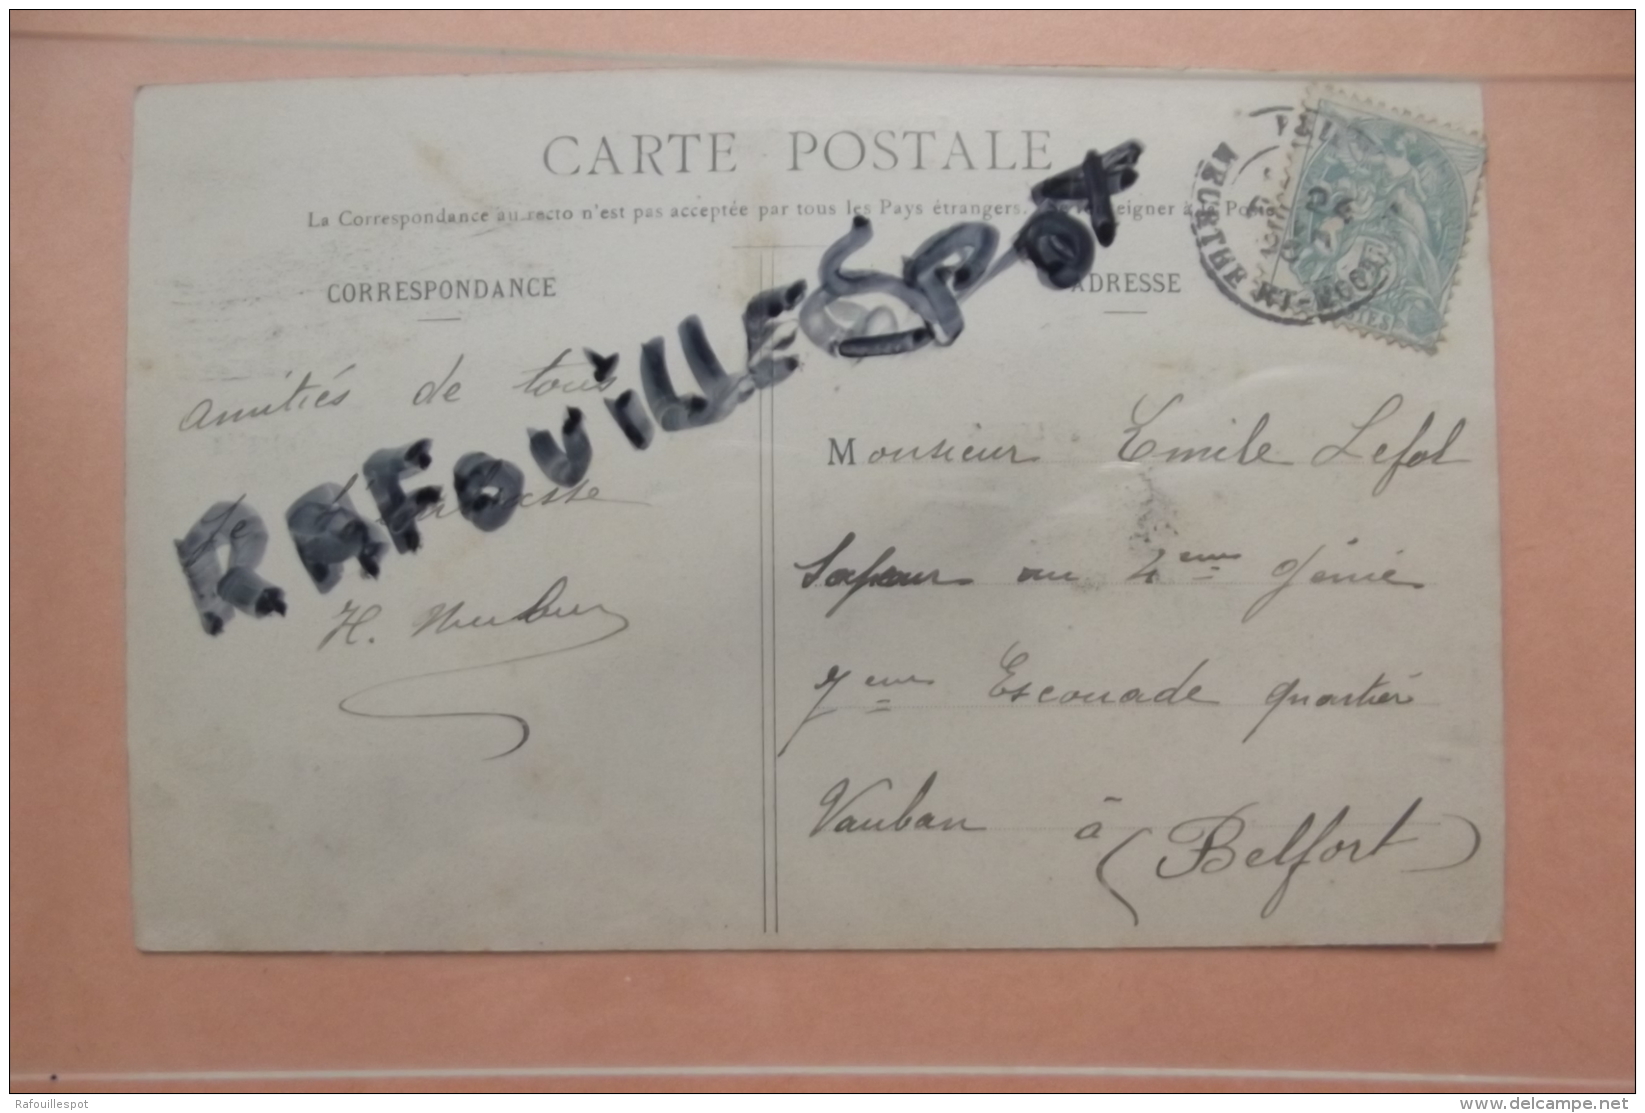 CARTE POSTALE
La Correspondance au recto n'est pas acceptée par tous les Pays étrangers.
CORRESPONDANCE
ADRESSE
amitiés de tous
RAFOUILLESPOT
H.
Monsieur Emile Lefol
Sapeur au 4eme Génie
7eme Escouade quartier
Vauban à
(Belfort)
MEURTHE-ET-MOSELLE
Rafouillespot
delcampe.net